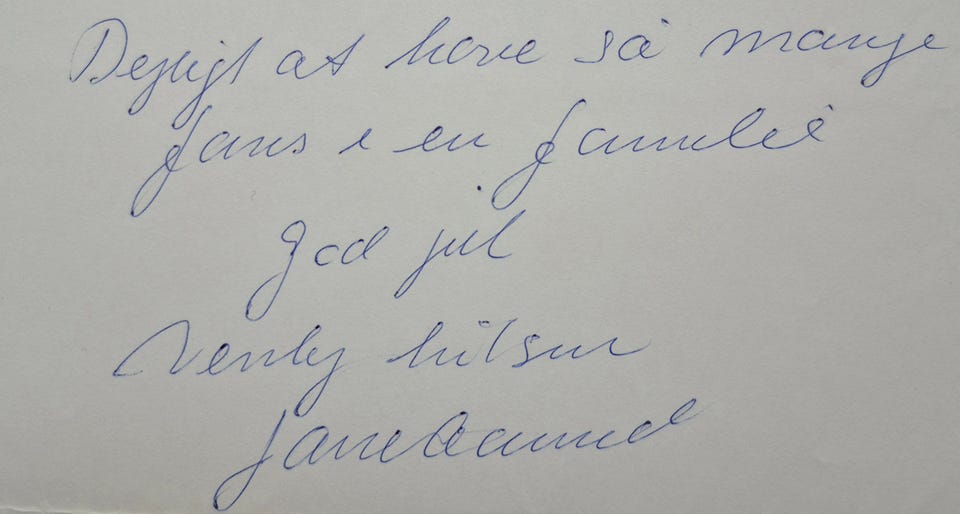 Dejligt at have så mange
fans i en familie
God jul
Venlig hilsen
Jane Aamund